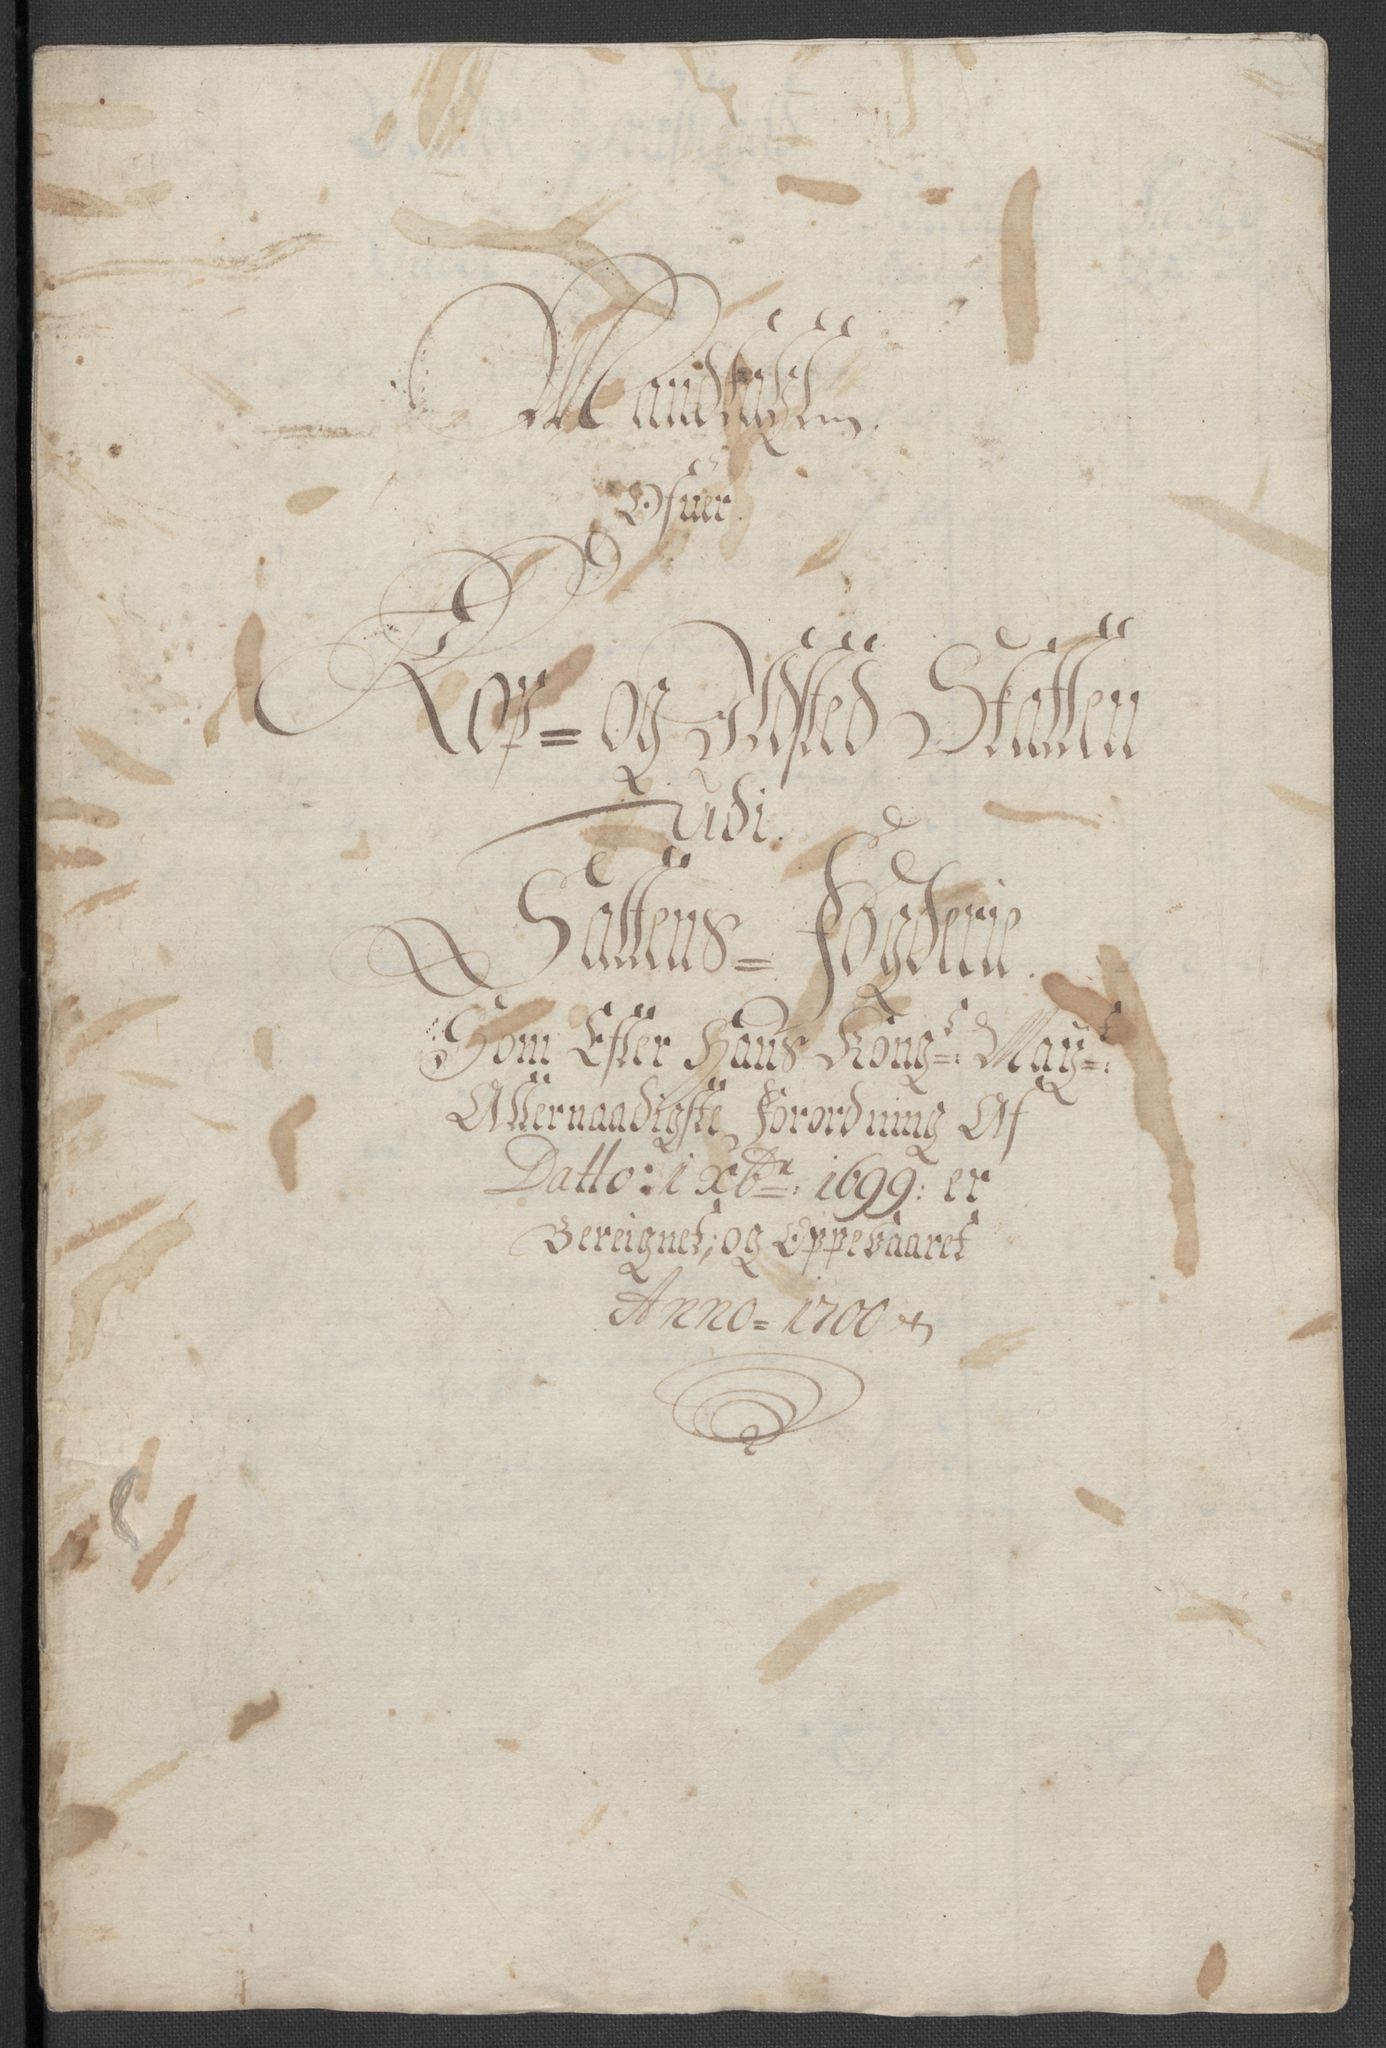 Mandtallen.
Ofuer
Kop= og Ildsted Skatten
udi.
Saltens= Fogderie.
Som Efter Hans Kongt: Mayt:
Allernaadigste Forordning Af
Datto: 1 Xbr: 1699: er
Bereignet, og Oppebaaret
Anno= 1700